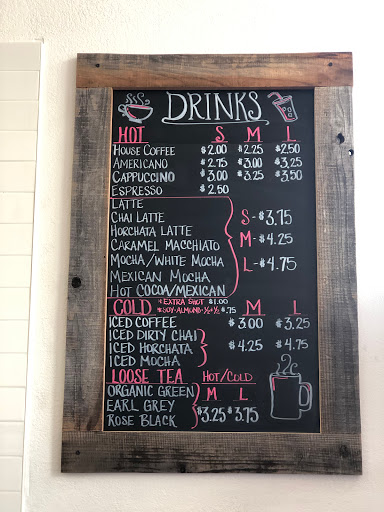 DRINKS
HOT S M L
HOUSE COFFEE $2.00 $2.25 $2.50
AMERICANO $2.75 $3.00 $3.25
CAPPUCCINO $3.00 $3.25 $3.50
ESPRESSO $2.50
LATTE
CHAI LATTE S-$3.75
HORCHATA LATTE
CARAMEL MACCHIATO M-$4.25
MOCHA/WHITE MOCHA L-$4.75
MEXICAN MOCHA
HOT COCOA/MEXICAN
COLD +EXTRA SHOT $1.00 M L
+SOY-ALMOND-½+½ $.75
ICED COFFEE $3.00 $3.25
ICED DIRTY CHAI
ICED HORCHATA $4.25 $4.75
ICED MOCHA
LOOSE TEA HOT/COLD
ORGANIC GREEN M L
EARL GREY $3.25 $3.75
ROSE BLACK